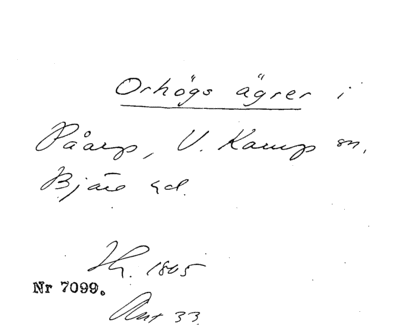 Orhögs ägrer i
Påarp, V. Karup sn,
Bjäre hd.
Hr. 1805
Nr 7099.
Akt 33.